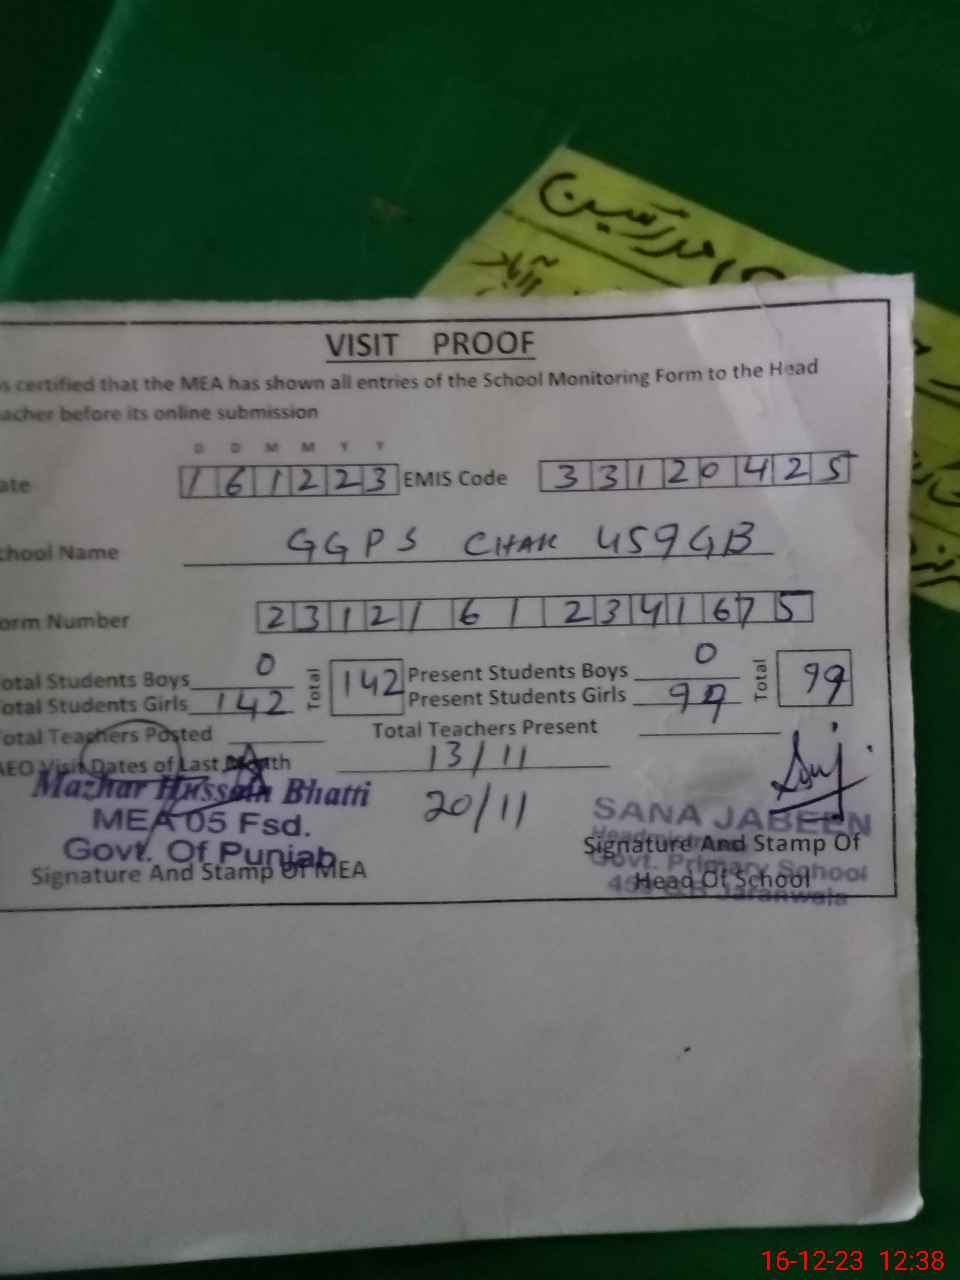 مدرسین
VISIT PROOF
s certified that the MEA has shown all entries of the School Monitoring Form to the Head
acher before its online submission
D D M M Y Y
ate 161223 EMIS Code 33120425
chool Name GGPS CHAK 459GB
orm Number 23121612341675
otal Students Boys 0 Total 142 Present Students Boys 0 Total 99
otal Students Girls 142 Present Students Girls 99
otal Teachers Posted Total Teachers Present
AEO Visit Dates of Last Month 13/11
20/11
Mazhar Hussain Bhatti
MEA 05 Fsd.
Govt. Of Punjab
Signature And Stamp Of MEA
SANA JABEEN
Headmistress
Signature And Stamp Of
Govt. Primary School
Head Of School
Jaranwala
16-12-23 12:38